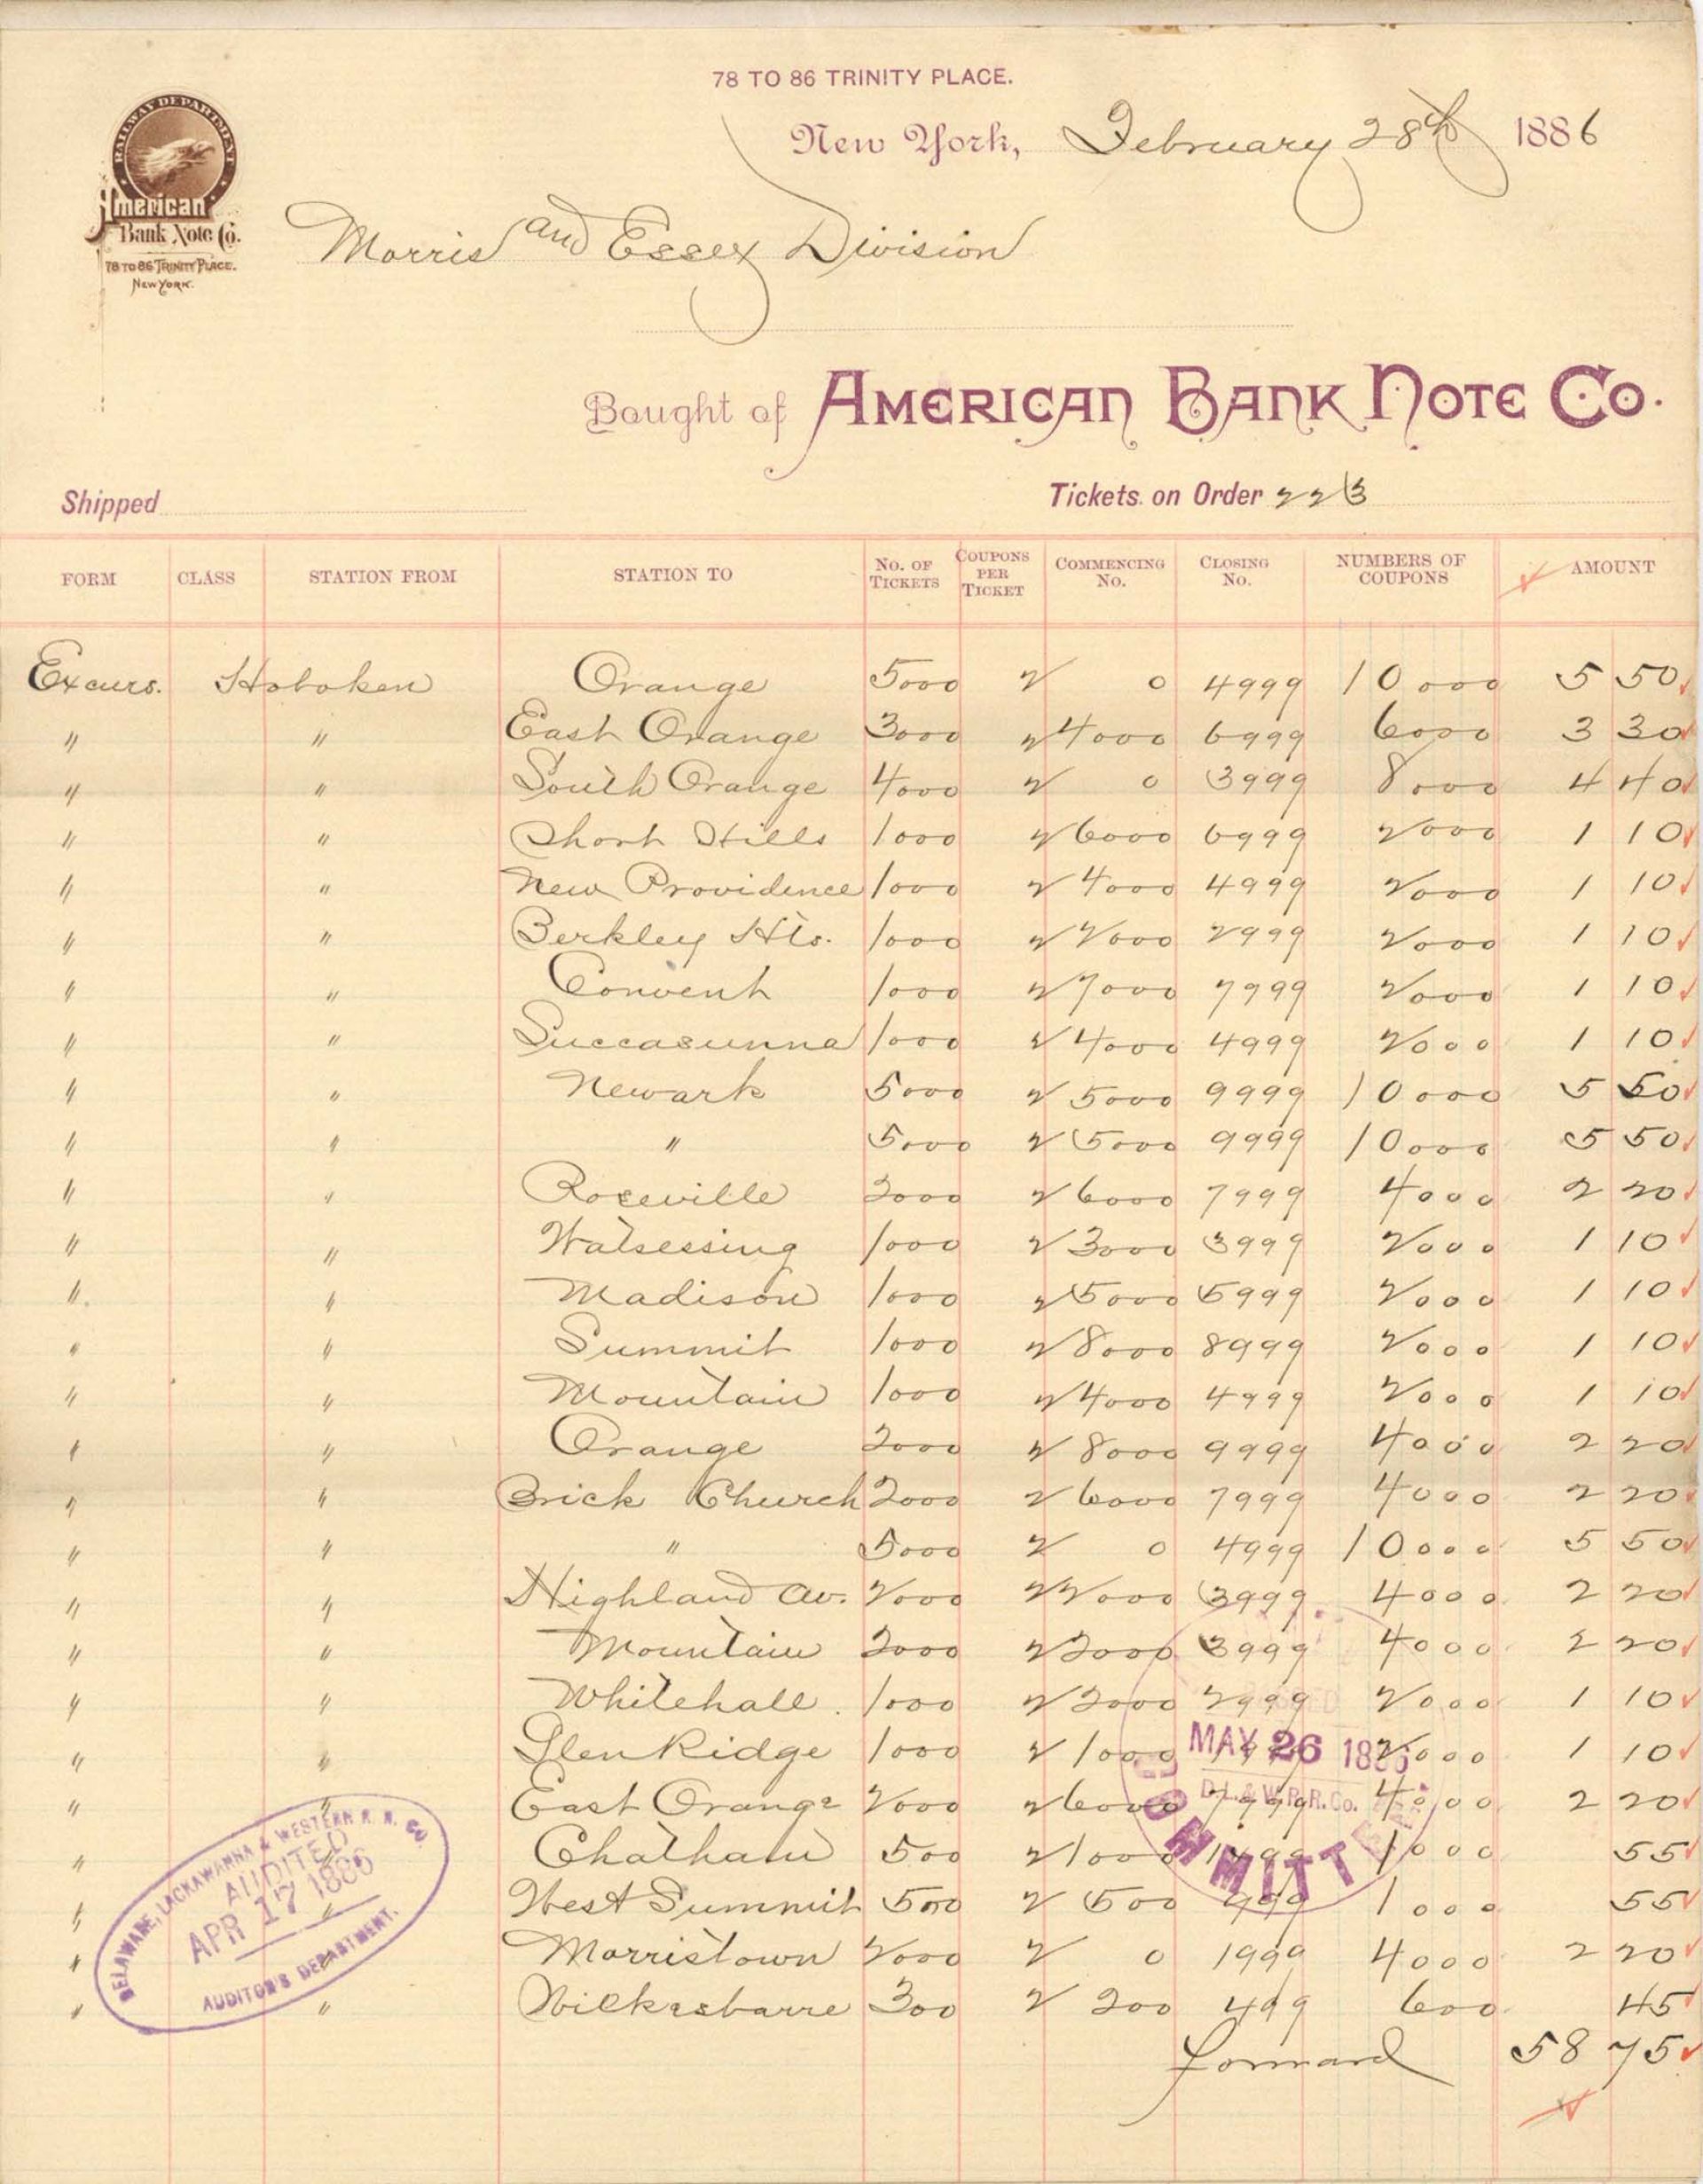 78 TO 86 TRINITY PLACE.
New York, February 28th 1886
RAILWAY DEPARTMENT
American
Bank Note Co.
78 TO 86 TRINITY PLACE.
NEW YORK.
Morris and Essex Division
Bought of AMERICAN BANK NOTE CO.
Shipped Tickets on Order 223
FORM CLASS STATION FROM STATION TO No. OF TICKETS COUPONS PER TICKET COMMENCING No. CLOSING No. NUMBERS OF COUPONS AMOUNT
Excurs. Hoboken Orange 5000 2 0 4999 10000 5 50
" " East Orange 3000 2 4000 6999 6000 3 30
" " South Orange 4000 2 0 3999 8000 4 40
" " Short Hills 1000 2 6000 6999 2000 1 10
" " New Providence 1000 2 4000 4999 2000 1 10
" " Berkley Hts. 1000 2 2000 2999 2000 1 10
" " Convent 1000 2 7000 7999 2000 1 10
" " Succasunna 1000 2 4000 4999 2000 1 10
" " Newark 5000 2 5000 9999 10000 5 50
" " " 5000 2 5000 9999 10000 5 50
" " Roseville 2000 2 6000 7999 4000 2 20
" " Watsessing 1000 2 3000 3999 2000 1 10
" " Madison 1000 2 5000 5999 2000 1 10
" " Summit 1000 2 8000 8999 2000 1 10
" " Mountain 1000 2 4000 4999 2000 1 10
" " Orange 2000 2 8000 9999 4000 2 20
" " Brick Church 2000 2 6000 7999 4000 2 20
" " " 5000 2 0 4999 10000 5 50
" " Highland Av. 2000 2 2000 3999 4000 2 20
" " Mountain 2000 2 2000 3999 4000 2 20
" " Whitehall. 1000 2 2000 2999 2000 1 10
" " Glen Ridge 1000 2 1000 1999 2000 1 10
" " East Orange 2000 2 6000 7999 4000 2 20
" " Chatham 500 2 1000 1499 1000 55
" " West Summit 500 2 500 999 1000 55
" " Morristown 2000 2 0 1999 4000 2 20
" " Wilkesbarre 300 2 200 499 600 45
forward 58 75
MAY 26 1886
D.L. & W.R.R. Co.
COMMITTEE
DELAWARE, LACKAWANNA & WESTERN R. R. Co
AUDITED
APR 17 1886
AUDITOR'S DEPARTMENT.